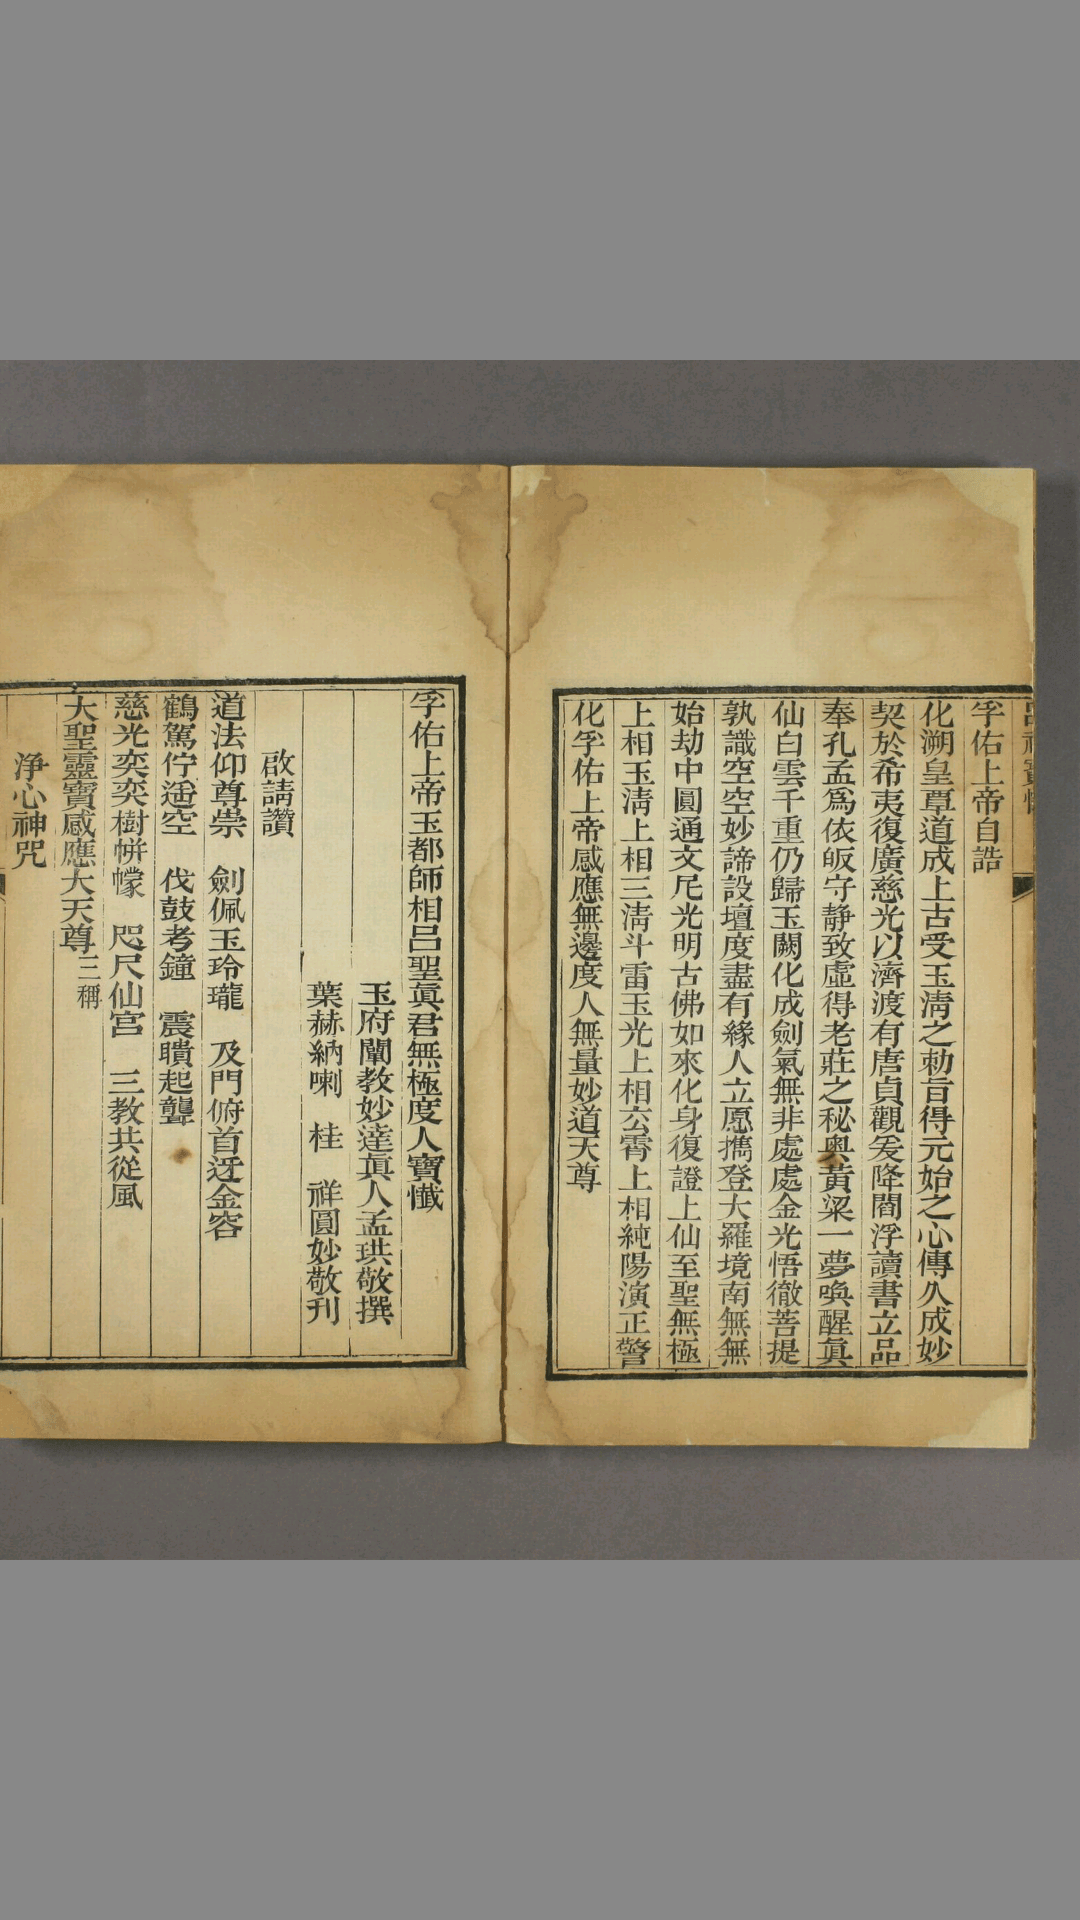 孚佑上帝自誥
化溯皇覃道成上古受玉淸之勅旨得元始之心傳久成妙
契於希夷復廣慈光以濟渡有唐貞觀爰降閻浮讀書立品
奉孔孟爲依皈守静致虛得老莊之秘奧黃粱一夢喚醒眞
仙白雲千重仍歸玉闕化成劍氣無非處處金光悟徹菩提
孰識空空妙諦設壇度盡有緣人立愿擕登大羅境南無無
始劫中圓通文尼光明古佛如來化身復證上仙至聖無極
上相玉淸上相三淸斗雷玉光上相玄霄上相純陽演正警
化孚佑上帝感應無邊度人無量妙道天尊
孚佑上帝玉都師相呂聖眞君無極度人寶懺
玉府闡教妙達眞人孟珙敬撰
葉赫納喇 桂 祥圓妙敬刊
啟請讚
道法仰尊崇 劍佩玉玲瓏 及門俯首迓金容
鶴駕佇遙空 伐鼓考鐘 震聵起聾
慈光奕奕樹帡幪 咫尺仙宮 三教共從風
大聖靈寶感應大天尊三稱
淨心神咒